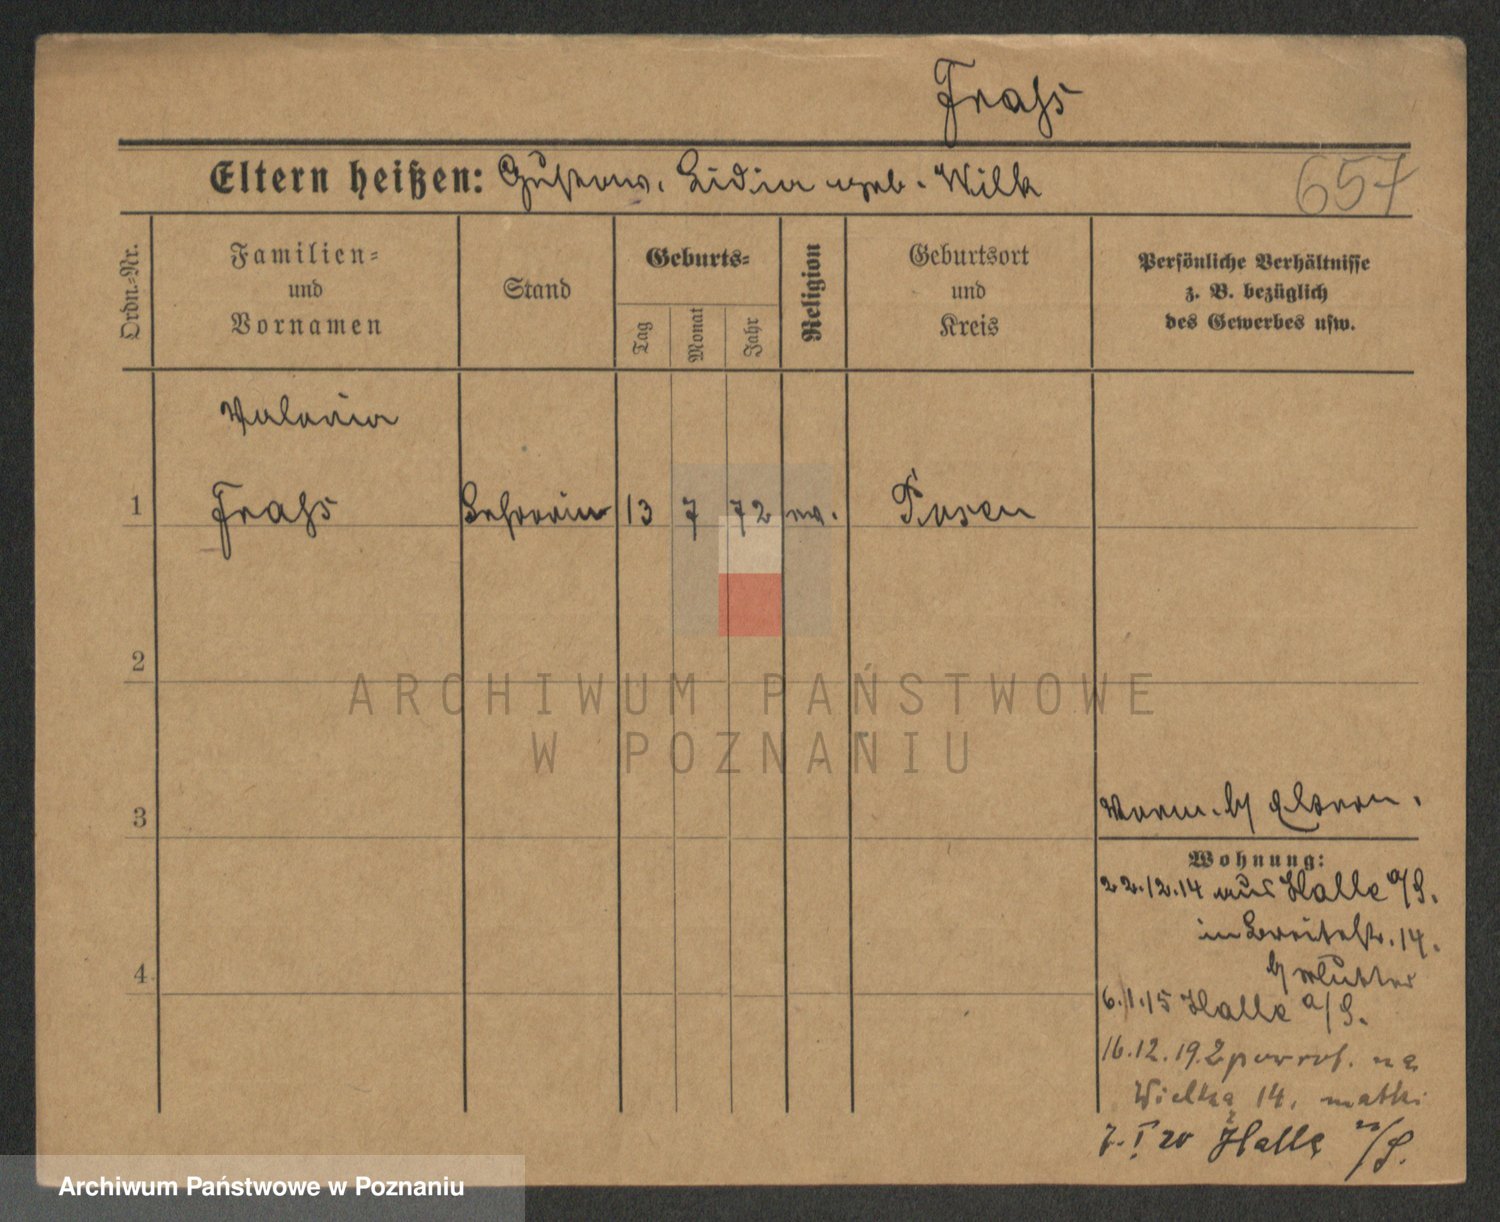 Frahs
Eltern heißen: Gustav. Lidia geb. Wilk
657
Ordn.-Nr.
Familien- und Vornamen
Stand
Geburts-
Tag
Monat
Jahr
Religion
Geburtsort und Kreis
Persönliche Verhältnisse
z. B. bezüglich
des Gewerbes usw.
Valeria
1 Frahs Lehrerin 13 7 72 ev. Posen
2
ARCHIWUM PAŃSTWOWE
W POZNANIU
3
Vorm. b/ Eltern.
Wohnung:
22.12.14 aus Halle a/S.
in Breitestr. 14.
b/ Mutter
4
6.1.15 Halle a/S.
16.12.19. z powrot. na
Wielką 14. matki
7. I 20 Halle a/S.
Archiwum Państwowe w Poznaniu